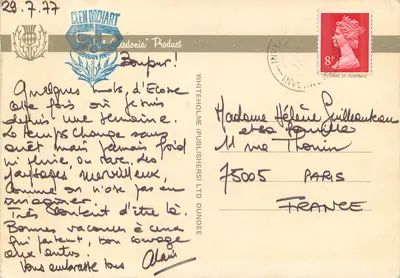 29.7.77
GLEN DOCHART
Caledonia" Product
Bonjour!
Quelques mots d'Ecosse
cette fois où je suis
depuis une semaine.
Le temps change sans
arrêt mais jamais froid
ni pluvieux, des
paysages merveilleux,
comme on n'ose pas en
imaginer.
Très content d'être là.
Bonnes vacances à ceux
qui partent, bon courage
aux autres.
Vous embrasse tous Alain
WHITEHOLME (PUBLISHERS) LTD DUNDEE
8P
Printed in Scotland
Madame Hélène Guillauteau
et sa famille
11 rue Thouin
75005 PARIS
FRANCE